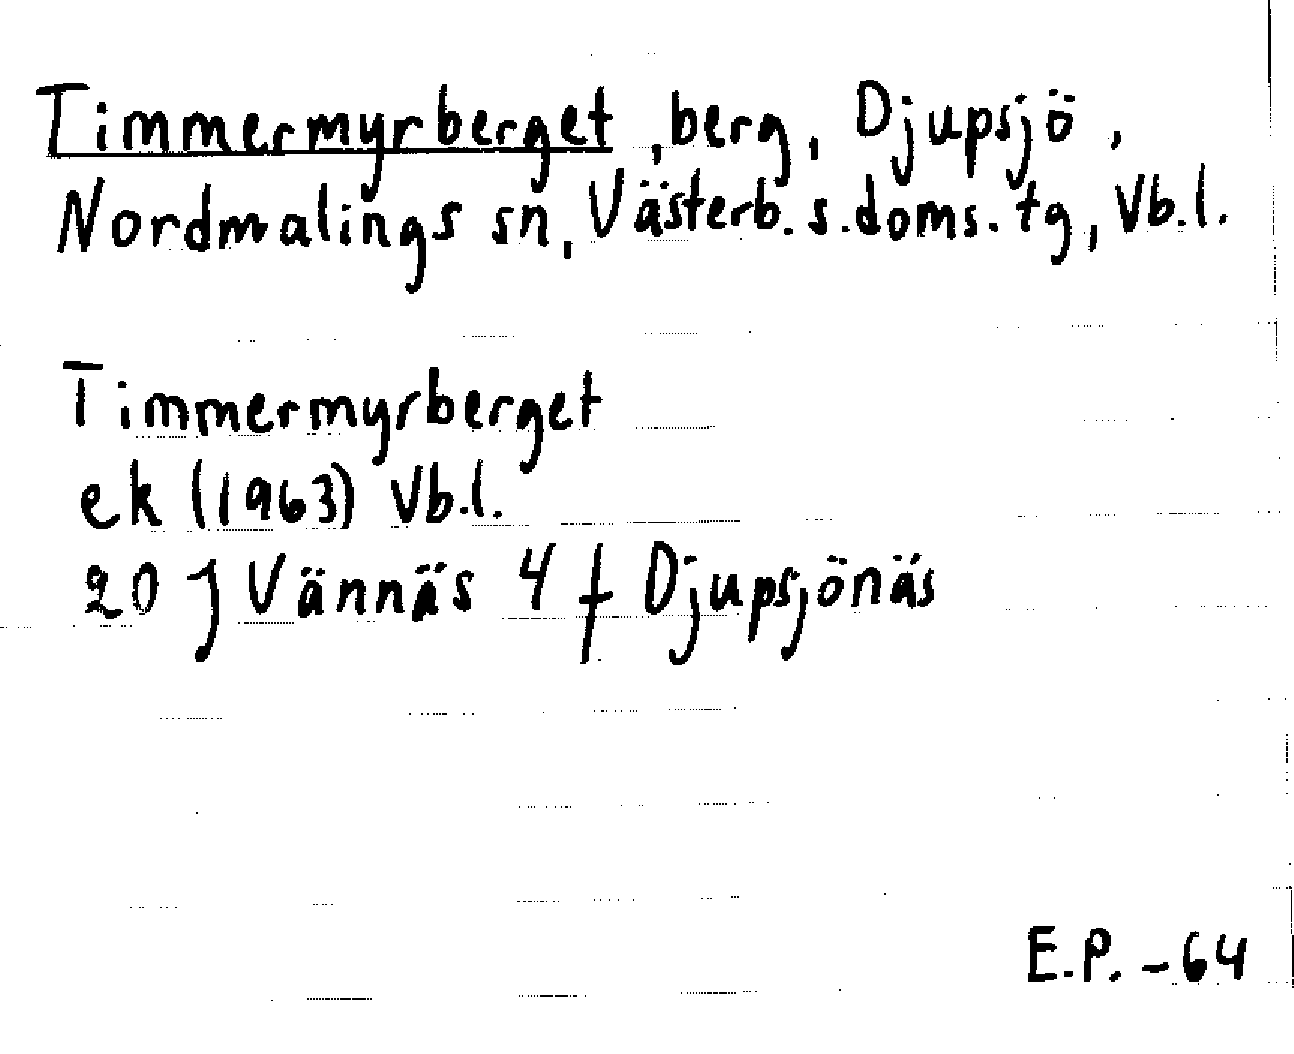 Timmermyrberget, berg, Djupsjö,
Nordmalings sn, Västerb. s. doms. tg, Vb.l.
Timmermyrberget
ek (1963) Vb.l.
20 J Vännäs 4 f Djupsjönäs
E.P. -64